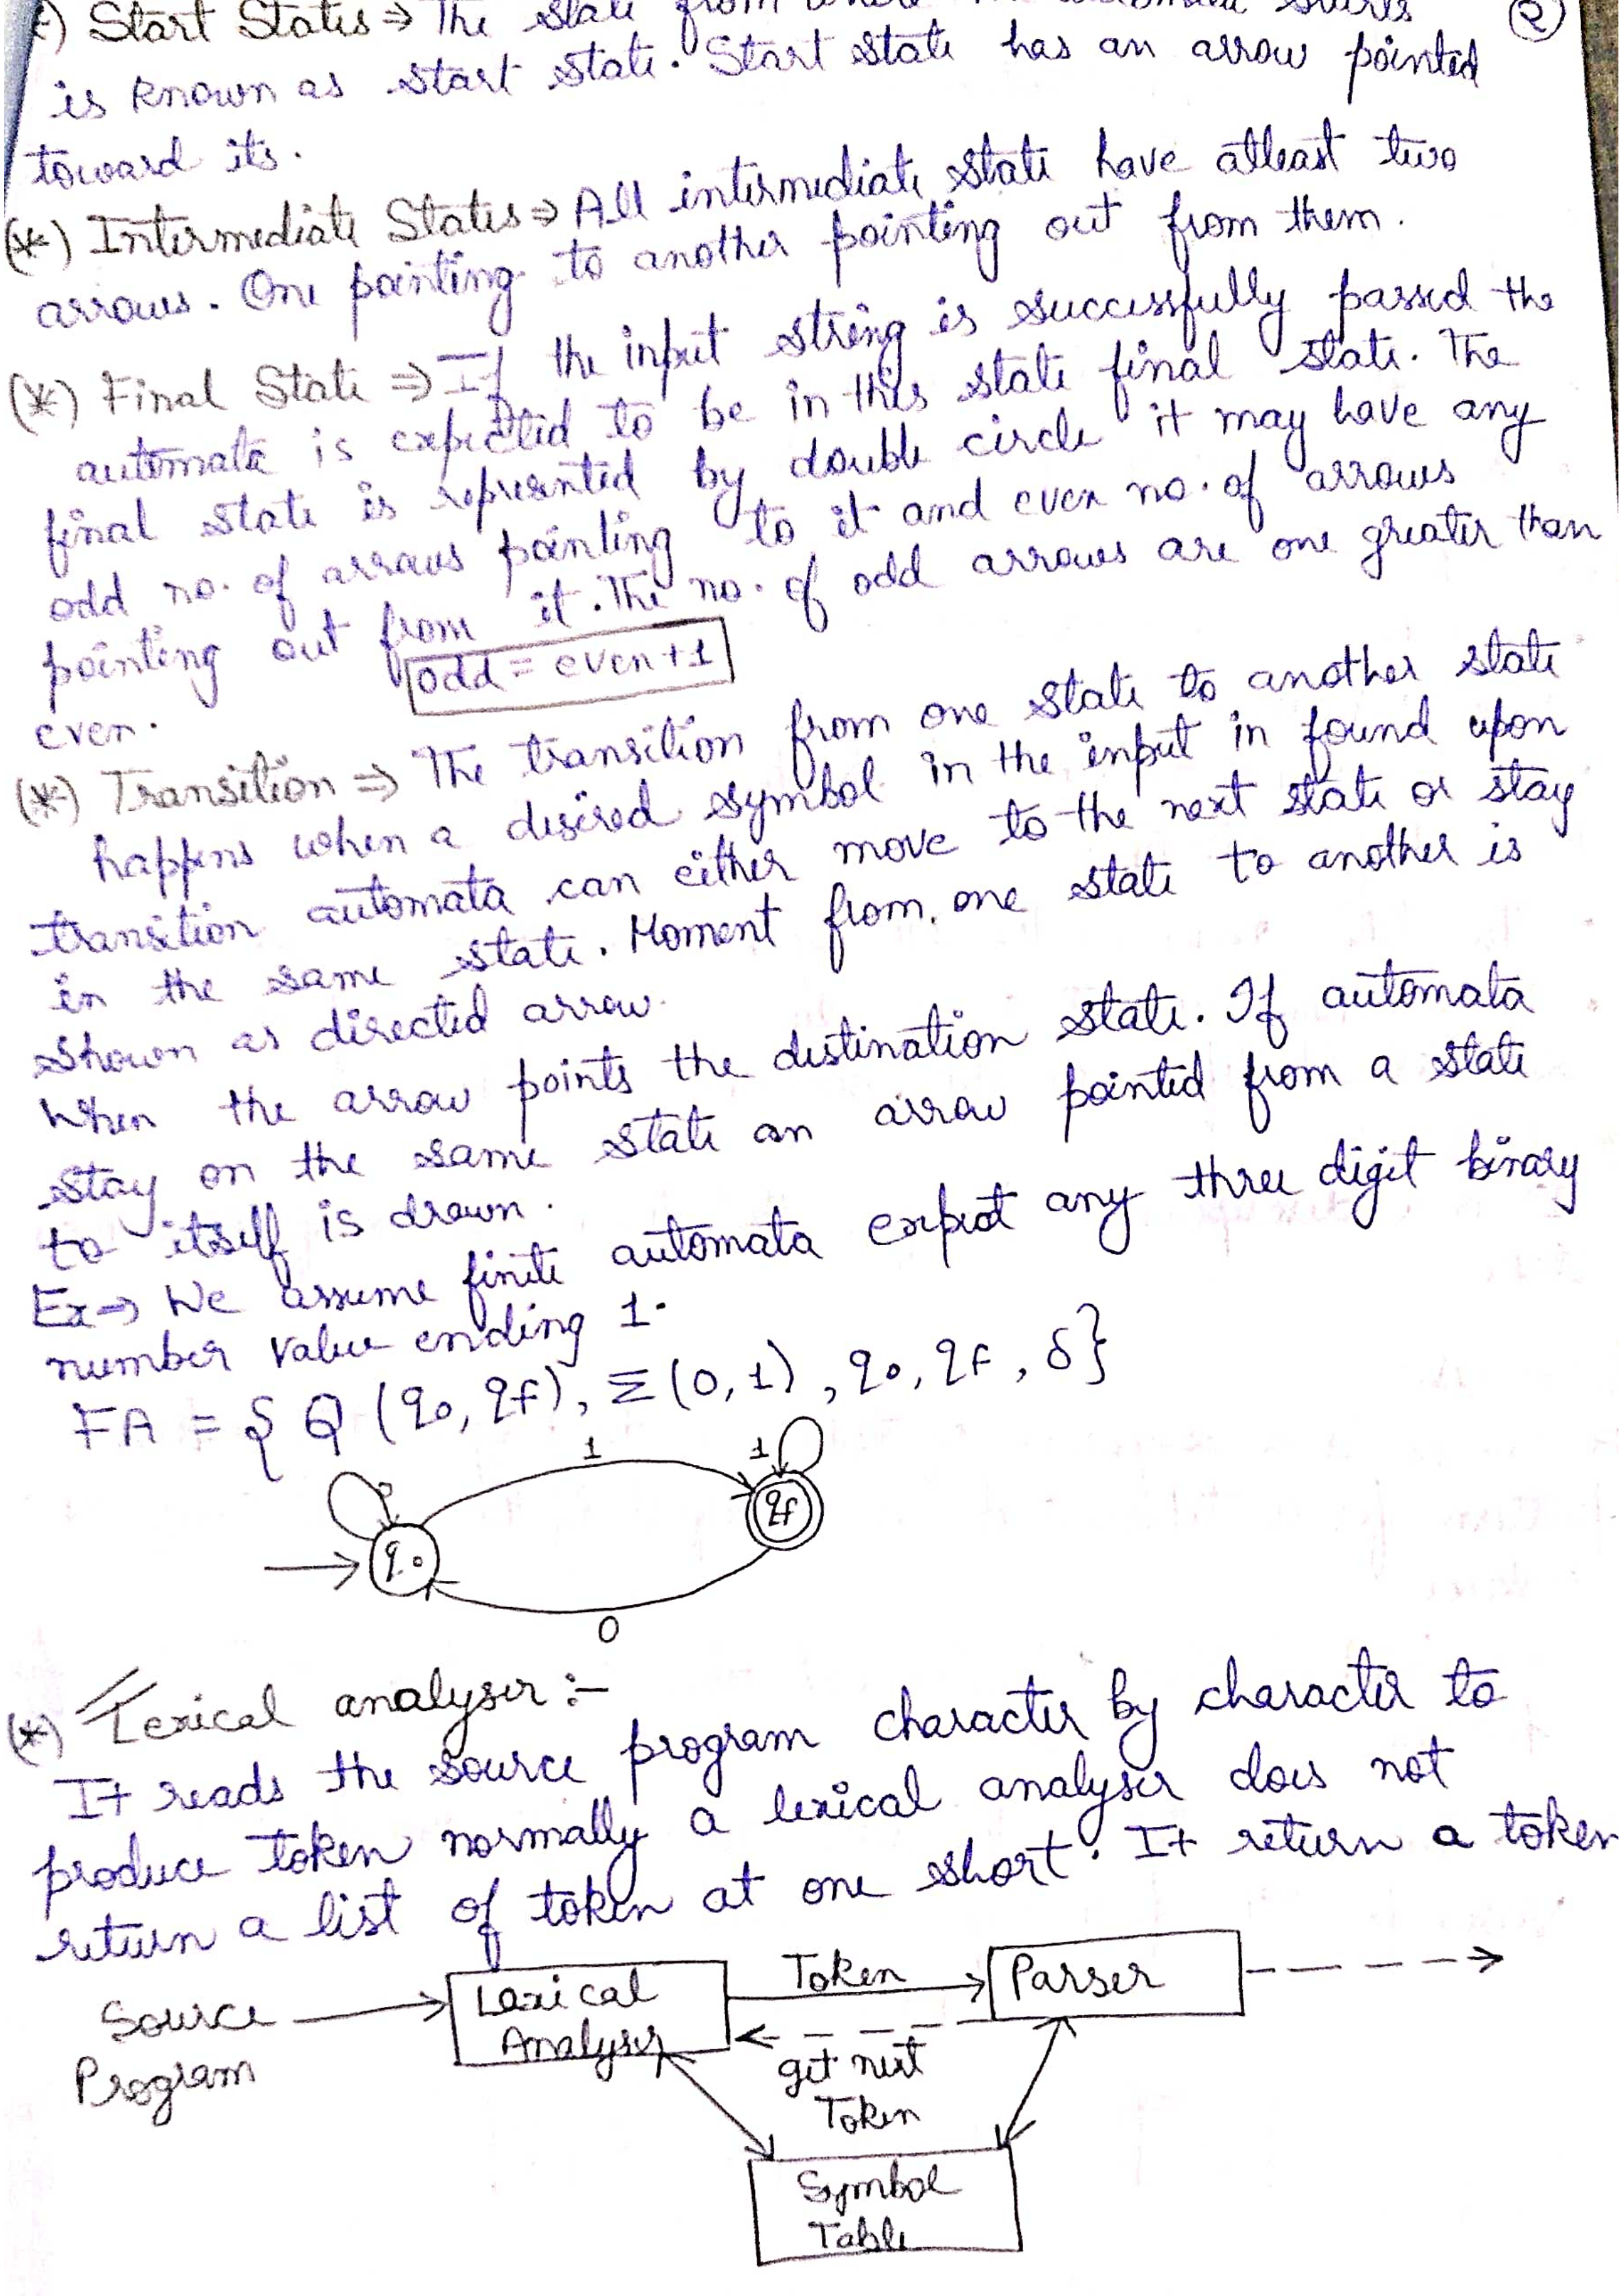 ) Start States ⇒ The state from where
②
is known as start state. Start state has an arrow pointed
toward its.
(*) Intermediate States ⇒ All intermediate state have atleast two
arrows. One pointing to another pointing out from them.
(*) Final State ⇒ If the input string is successfully passed the
automata is expected to be in this state final state. The
final state is represented by double circle it may have any
odd no. of arrows pointing to it and even no. of arrows
pointing out from it. The no. of odd arrows are one greater than
even.
odd = even+1
(*) Transition ⇒ The transition from one state to another state
happens when a desired symbol in the input in found upon
transition automata can either move to the next state or stay
in the same state. Moment from one state to another is
shown as directed arrow.
When the arrow points the destination state. If automata
stay on the same state an arrow pointed from a state
to itself is drawn.
Ex→ We assume finite automata any three digit binary
number value ending 1.
FA = { Q (q0, qf), Σ(0,1), q0, qf, δ}
1
1
qf
q0
0
(*) Lexical analyser :-
It reads the source program character by character to
produce token normally a lexical analyser does not
return a list of token at one short. It return a token
Source
Program
Lexical
Analyser
Token
get next
Token
Parser
Symbol
Table